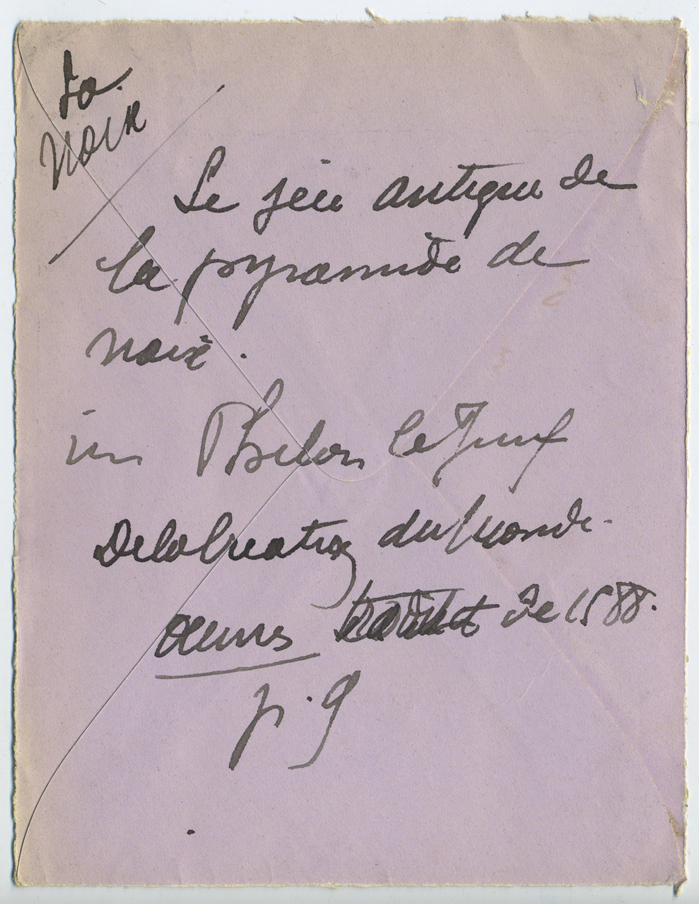 Noix
Le jeu antique de
la pyramide de
noix.
in Philon le Juif
De la Creation du Monde.
œuvres de 1588.
p. 9